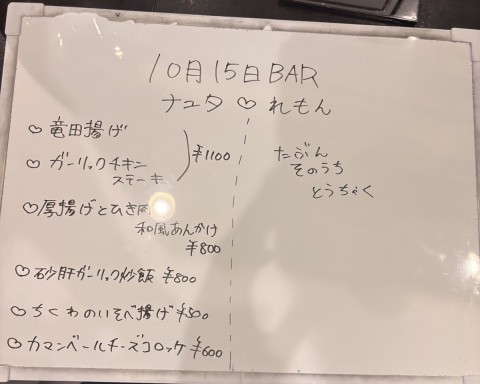 10月15日BAR
ナユタ♡れもん
♡竜田揚げ
♡ガーリックチキン
ステーキ
¥1100
♡厚揚げとひき肉
和風あんかけ
¥800
♡砂肝ガーリック炒飯 ¥800
♡ちくわのいそべ揚げ ¥500
♡カマンベールチーズコロッケ ¥600
たぶん
そのうち
とうちゃく